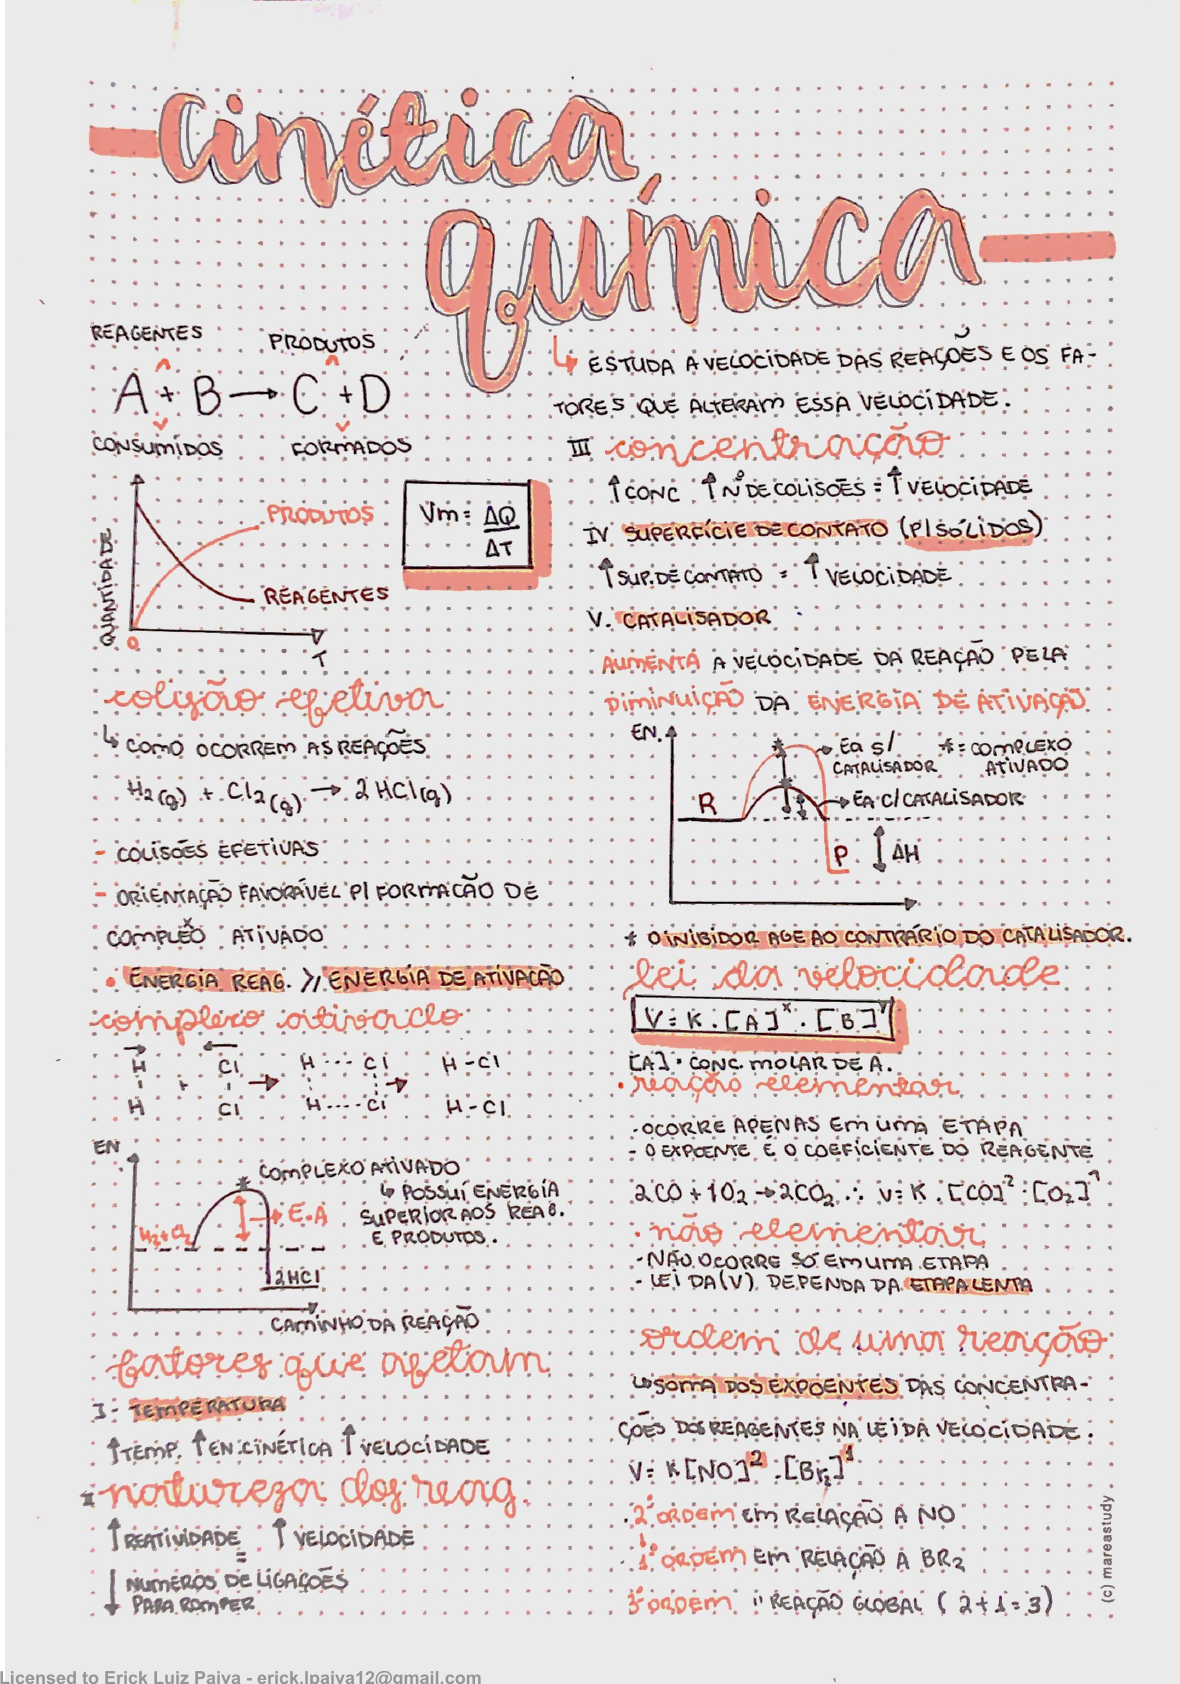 cinética
química
REAGENTES
PRODUTOS
A + B → C + D
CONSUMIDOS
FORMADOS
QUANTIDADE
PRODUTOS
REAGENTES
0
T
Vm = ΔQ
ΔT
colisão efetiva
↳ COMO OCORREM AS REAÇÕES
H2(g) + Cl2(g) → 2 HCl(g)
- COLISÕES EFETIVAS
- ORIENTAÇÃO FAVORÁVEL P/ FORMACÃO DE
COMPLEXO ATIVADO
• ENERGIA REAG. ≥ ENERGIA DE ATIVAÇÃO
complexo ativado
H Cl H ---- Cl H - Cl
+ → →
H Cl H ---- Cl H - Cl
EN.
COMPLEXO ATIVADO
↳ POSSUÍ ENERGIA
SUPERIOR AOS REAG.
E PRODUTOS.
E.A
H2+Cl2
2HCl
CAMINHO DA REAÇÃO
fatores que afetam
I - TEMPERATURA
↑TEMP. ↑EN. CINÉTICA ↑ VELOCIDADE
II natureza dos reag.
↑REATIVIDADE ↑ VELOCIDADE
=
↓ NÚMEROS DE LIGAÇÕES
PARA ROMPER
↳ ESTUDA A VELOCIDADE DAS REAÇÕES E OS FA-
TORES QUE ALTERAM ESSA VELOCIDADE.
III concentração
↑CONC ↑ Nº DE COLISÕES = ↑ VELOCIDADE
IV SUPERFÍCIE DE CONTATO (P/ SÓLIDOS)
↑SUP. DE CONTATO = ↑ VELOCIDADE
V. CATALISADOR
AUMENTA A VELOCIDADE DA REAÇÃO PELA
DIMINUIÇÃO DA ENERGIA DE ATIVAÇÃO
EN.
Ea s/
CATALISADOR
* = COMPLEXO
ATIVADO
R
EA C/ CATALISADOR
P
ΔH
* O INIBIDOR AGE AO CONTRÁRIO DO CATALISADOR.
lei da velocidade
V = K . [A]^x . [B]^y
[A] = CONC. MOLAR DE A.
• reação elementar
- OCORRE APENAS EM UMA ETAPA
- O EXPOENTE É O COEFICIENTE DO REAGENTE
2CO + 1O2 → 2CO2 ∴ V = K . [CO]² . [O2]¹
• não elementar
- NÃO OCORRE SÓ EM UMA ETAPA
- LEI DA (V) DEPENDA DA ETAPA LENTA
ordem de uma reação
↳ SOMA DOS EXPOENTES DAS CONCENTRA-
ÇÕES DOS REAGENTES NA LEI DA VELOCIDADE.
V = K [NO]² . [Br2]¹
. 2º ORDEM EM RELAÇÃO A NO
. 1º ORDEM EM RELAÇÃO A BR2
3º ORDEM " REAÇÃO GLOBAL ( 2 + 1 = 3 )
(c) mareastudy
Licensed to Erick Luiz Paiva - erick.lpaiva12@gmail.com